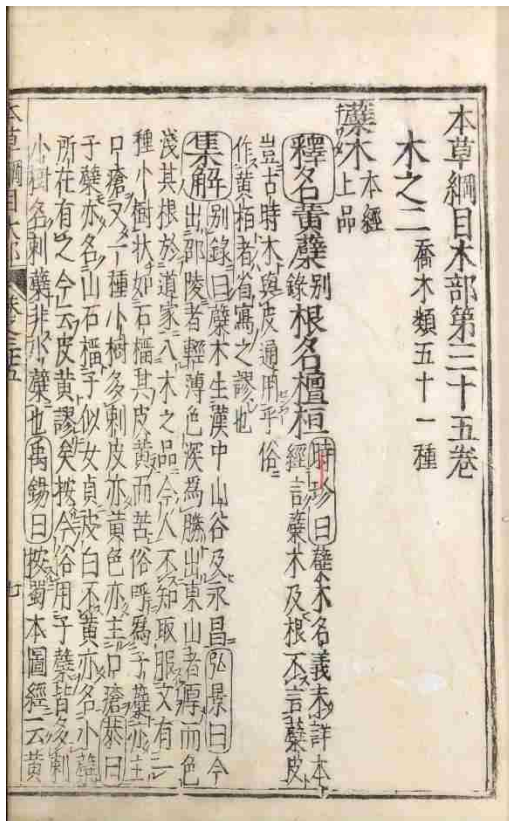 本草綱目木部第三十五卷
木之二 喬木類五十一種
蘗木 本經上品
釋名 黃蘗 別錄 根名檀桓 時珍曰蘗木名義未詳本經言蘗木及根不言蘗皮
豈古時木與皮通用乎俗
作黃柏者省寫之謬也
集解 別錄曰蘗木生漢中山谷及永昌弘景曰今
出邵陵者輕薄色深爲勝出東山者厚而色
淺其根於道家入木之品今人不知取服又有一
種小樹狀如石榴其皮黃而苦俗呼爲子蘗亦主
口瘡又一種小樹多刺皮亦黃色亦主口瘡恭曰
子蘗亦名山石榴子似女貞皮白不黃亦名小蘗
所在有之今云皮黃謬矣按今俗用子蘗皆多刺
小樹名刺蘗非小蘗也禹錫曰按蜀本圖經云黃
本草綱目木部 卷之三十五 七